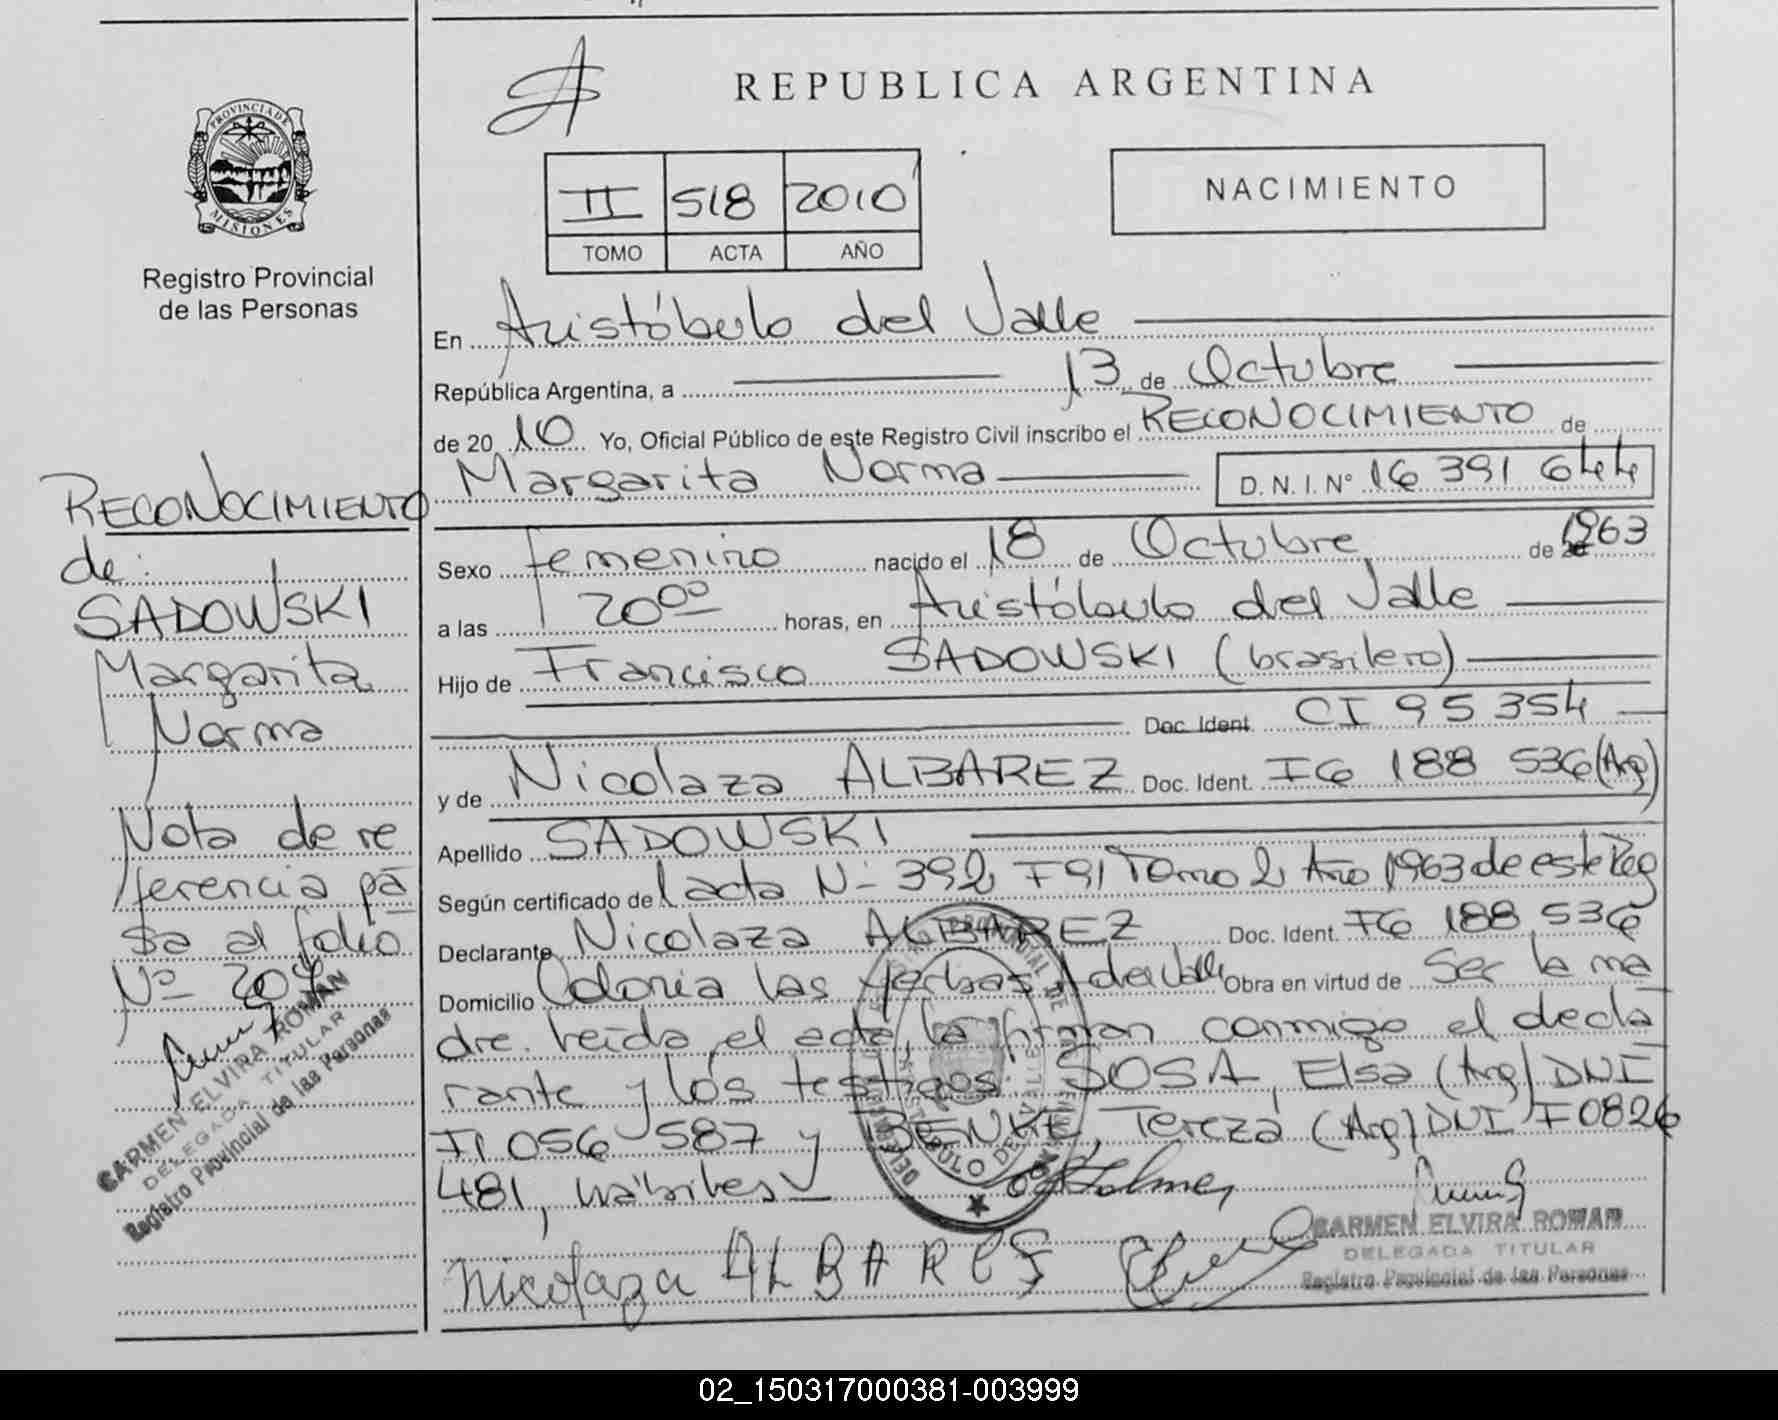 REPUBLICA ARGENTINA
PROVINCIA DE
MISIONES
II 518 2010
TOMO ACTA AÑO
NACIMIENTO
Registro Provincial
de las Personas
En Aristóbulo del Valle
República Argentina, a 13 de Octubre
de 20 10 Yo, Oficial Público de este Registro Civil inscribo el RECONOCIMIENTO de
Margarita Norma D.N.I. Nº 16 391 644
Sexo femenino nacido el 18 de Octubre de 1963
a las 20 00 horas, en Aristóbulo del Valle
Hijo de Francisco SADOWSKI (brasilero)
Doc. Ident. CI 95 354
y de Nicolaza ALBAREZ Doc. Ident. I6 188 536 (Arg)
Apellido SADOWSKI
Según certificado de acta Nº 392 F 91 Tomo 2 Año 1963 de este Reg
Declarante Nicolaza ALBAREZ Doc. Ident. F6 188 536
Domicilio Colonia las yerbas A. del Valle Obra en virtud de Ser la ma
dre. Leída el acta, la firman conmigo el decla
rante y los testigos: SOSA, Elsa (Arg) DNI
F1 056 587 y BENKE, Tereza (Arg) DNI F0826
481, hábiles
Nicolaza ALBARES
CARMEN ELVIRA ROMAN
DELEGADA TITULAR
Registro Provincial de las Personas
RECONOCIMIENTO
de:
SADOWSKI
Margarita
Norma
Nota de re
ferencia pa
sa al folio
Nº 207
CARMEN ELVIRA ROMAN
DELEGADA TITULAR
Registro Provincial de las Personas
02_150317000381-003999